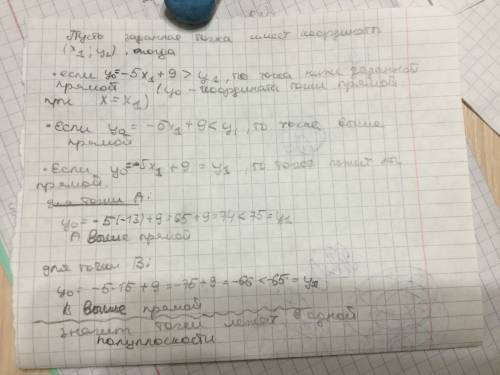 Пусть заданная точка имеет координаты
(x₁; y₁), тогда
• если y₀=-5x₁+9 > y₁, то точка ниже заданной
прямой (y₀ - координата точки прямой
при x=x₁)
• Если y₀ = -5x₁+9 < y₁, то точка выше
прямой
• Если y₀=-5x₁+9 = y₁, то точка лежит на
прямой.
для точки A:
y₀= -5(-13)+9=65+9=74<75=y₁
A выше прямой
для точки B:
y₀= -5·15+9=-75+9=-66<-65=y₁
B выше прямой
значит точки лежат в одной
полуплоскости